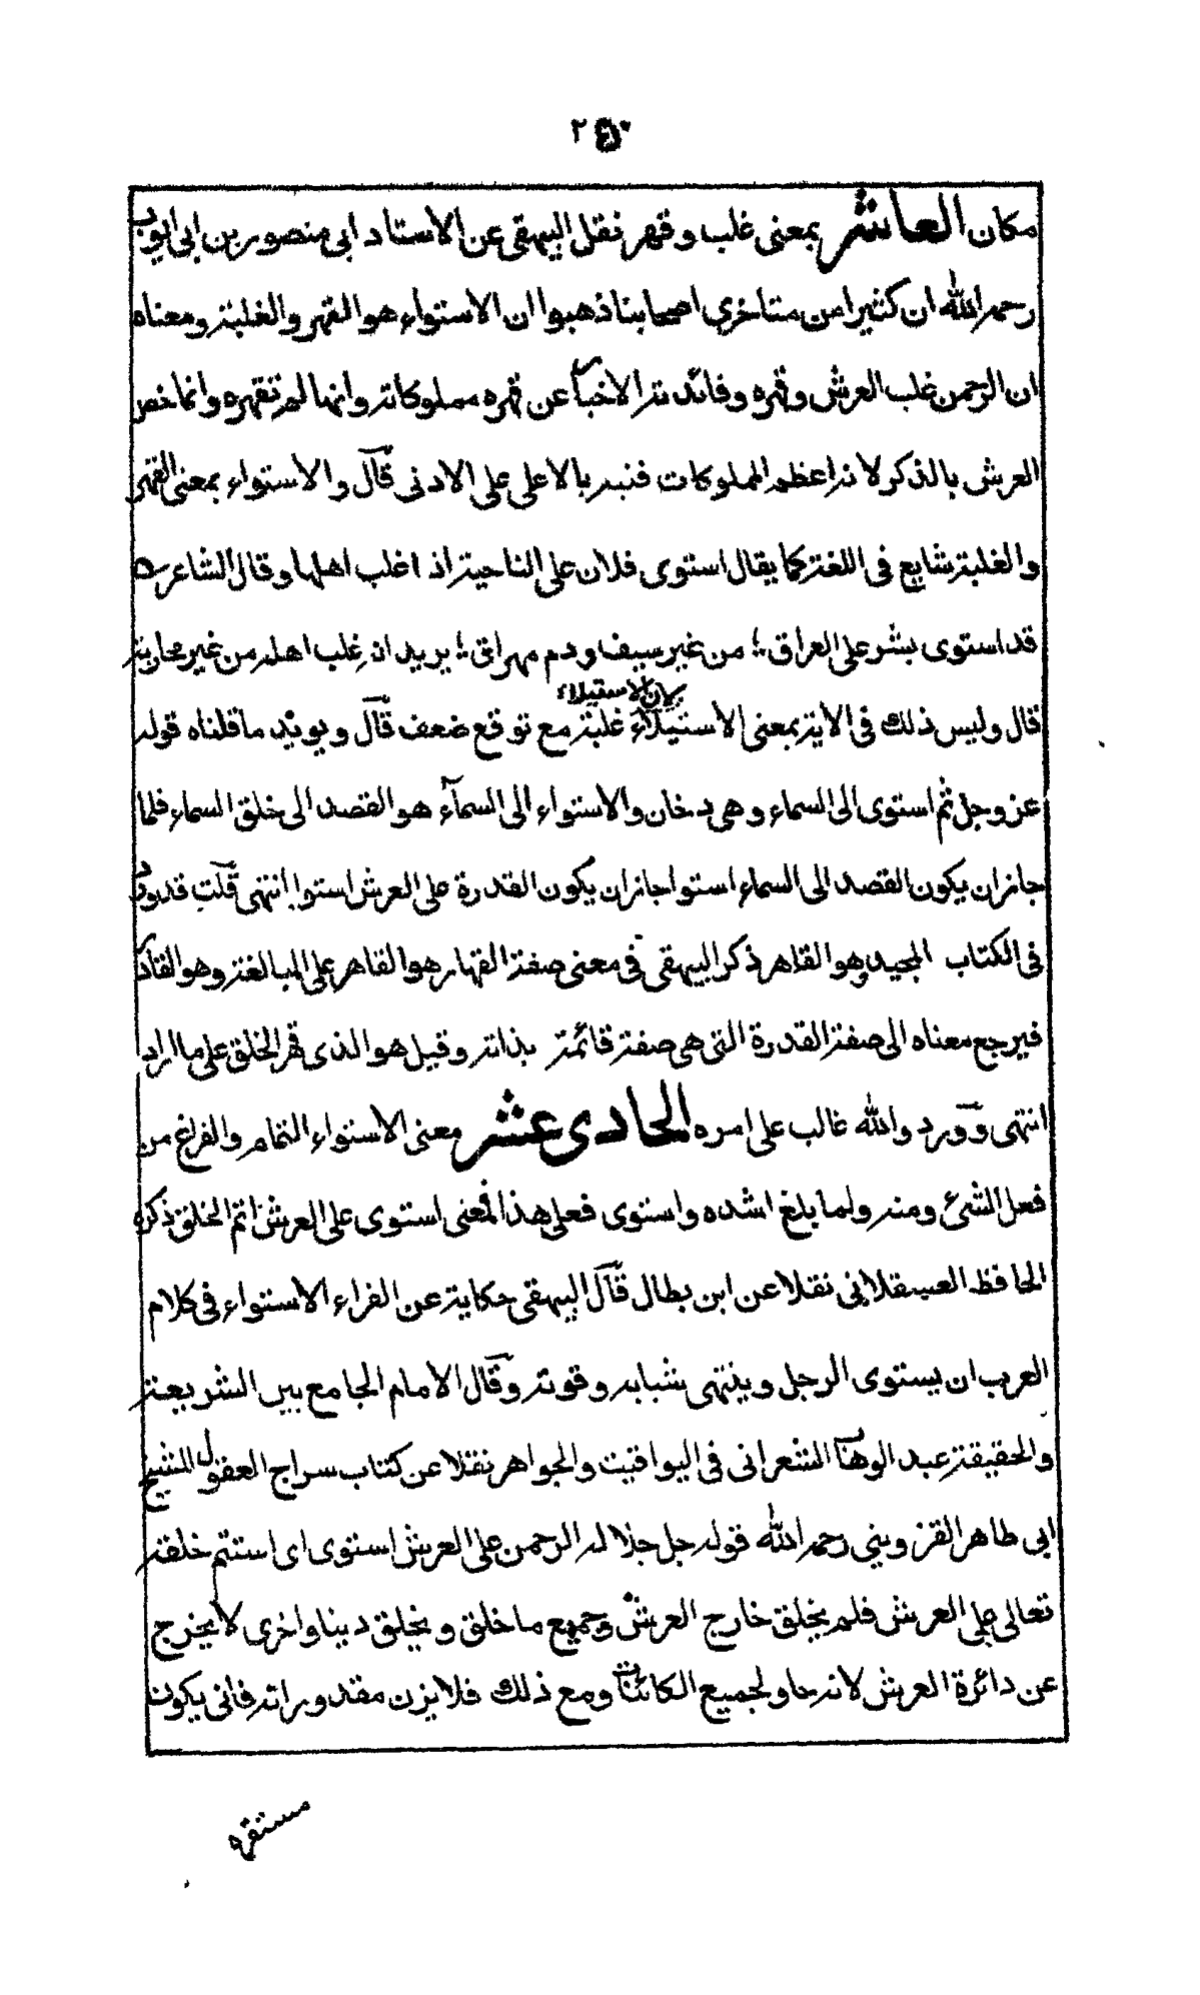 ٢٥٠
مكان العاشر بمعنى غلب وقهر نقل البيهقى عن الاستاد ابى منصور بن ابى ايوب
رحمه الله ان كثيرا من متاخرى اصحابنا ذهبوا ان الاستواء هو القهر والغلبة ومعناه
ان الرحمن غلب العرش وقهره وفائدته الاخبار عن قهره مملوكاته وانها لم تقهره وانما خص
العرش بالذكر لانه اعظم المملوكات فنبه بالاعلى على الادنى قال والاستواء بمعنى القهر
والغلبة شايع فى اللغة كما يقال استوى فلان على الناحية اذ اغلب اهلها وقال الشاعر ه
قد استوى بشر على العراق ؛ من غير سيف ودم مهراق ؛ يريد انه غلب اهله من غير محاربة
قال وليس ذلك فى الاية بمعنى الاستيلاء غلبة مع توقع ضعف قال ويويد ما قلناه قوله
لان الاستيلاء
عز وجل ثم استوى الى السماء وهى دخان والاستواء الى السمآء هو القصد الى خلق السماء فلما
جازان يكون القصد الى السماء استوا جازان يكون القدرة على العرش استوا انتهى قلت قد ورد
فى الكتاب المجيد وهو القاهر ذكر البيهقى فى معنى صفة القهار هو القاهر على المبالغة وهو القادر
فيرجع معناه الى صفة القدرة التى هى صفة قائمة بذاته وقيل هو الذى قهر الخلق على ما اراد
انتهى وورد والله غالب على امره الحادى عشر معنى الاستواء التمام والفراغ من
فعل الشىء ومنه ولما بلغ اشده واستوى فعلى هذا المعنى استوى على العرش اتم الخلق ذكره
الحافظ العسقلانى نقلا عن ابن بطال قال البيهقى حكاية عن الفراء الاستواء فى كلام
العرب ان يستوى الرجل وينتهى شبابه وقوته وقال الامام الجامع بين الشريعة
والحقيقة عبد الوهاب الشعرانى فى اليواقيت والجواهر نقلا عن كتاب سراج العقول للشيخ
ابى طاهر القزوينى رحمه الله قوله جل جلاله الرحمن على العرش استوى اى استتم خلقه
تعالى على العرش فلم يخلق خارج العرش وجميع ما خلق ويخلق دينا واخرى لا يخرج
عن دائرة العرش لانه حاو لجميع الكائنات ومع ذلك فلا يزن مقدوراته فانى يكون
مستقره